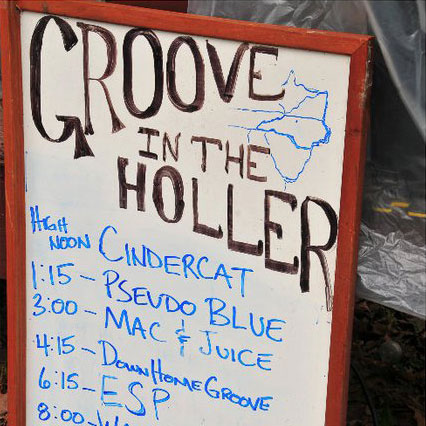 GROOVE
IN THE
HOLLER
HIGH NOON CINDERCAT
1:15 - PSEUDO BLUE
3:00 - MAC & JUICE
4:15 - DOWN HOME GROOVE
6:15 - ESP
8:00 -